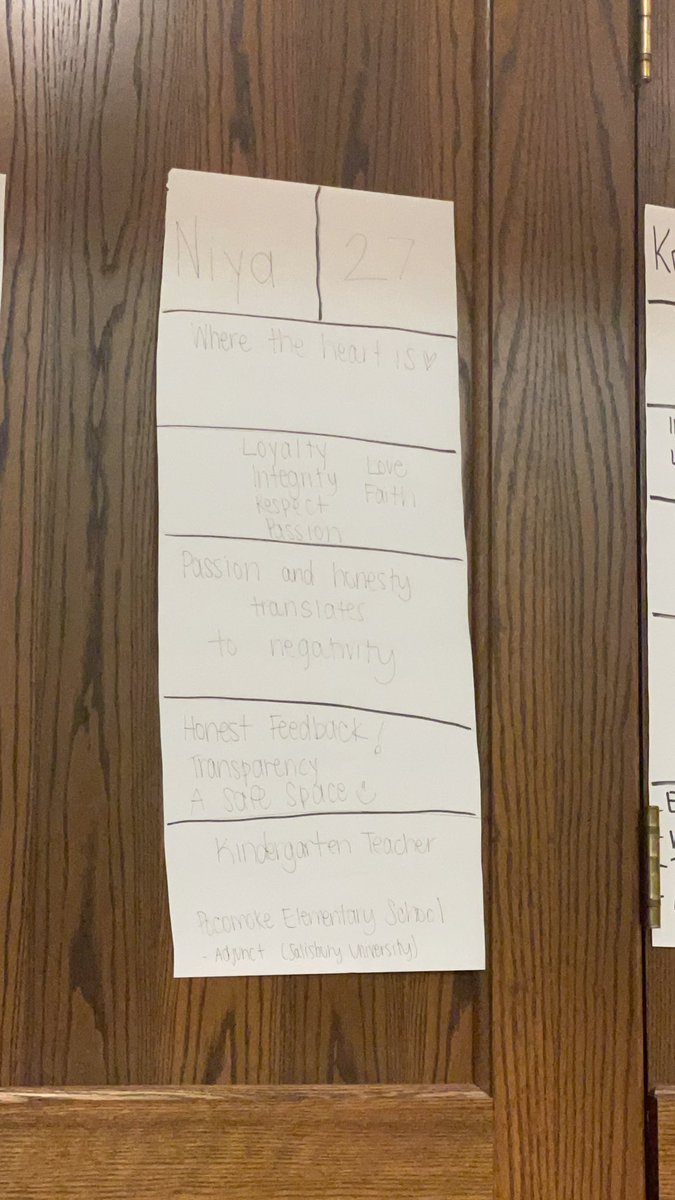 Niya 27
Where the heart is ♡
Loyalty
Integrity Love
Respect Faith
Passion
Passion and honesty
translates
to negativity
Honest Feedback!
Transparency
A safe space ☺
Kindergarten Teacher
Pocomoke Elementary School
- Adjunct (Salisbury University)